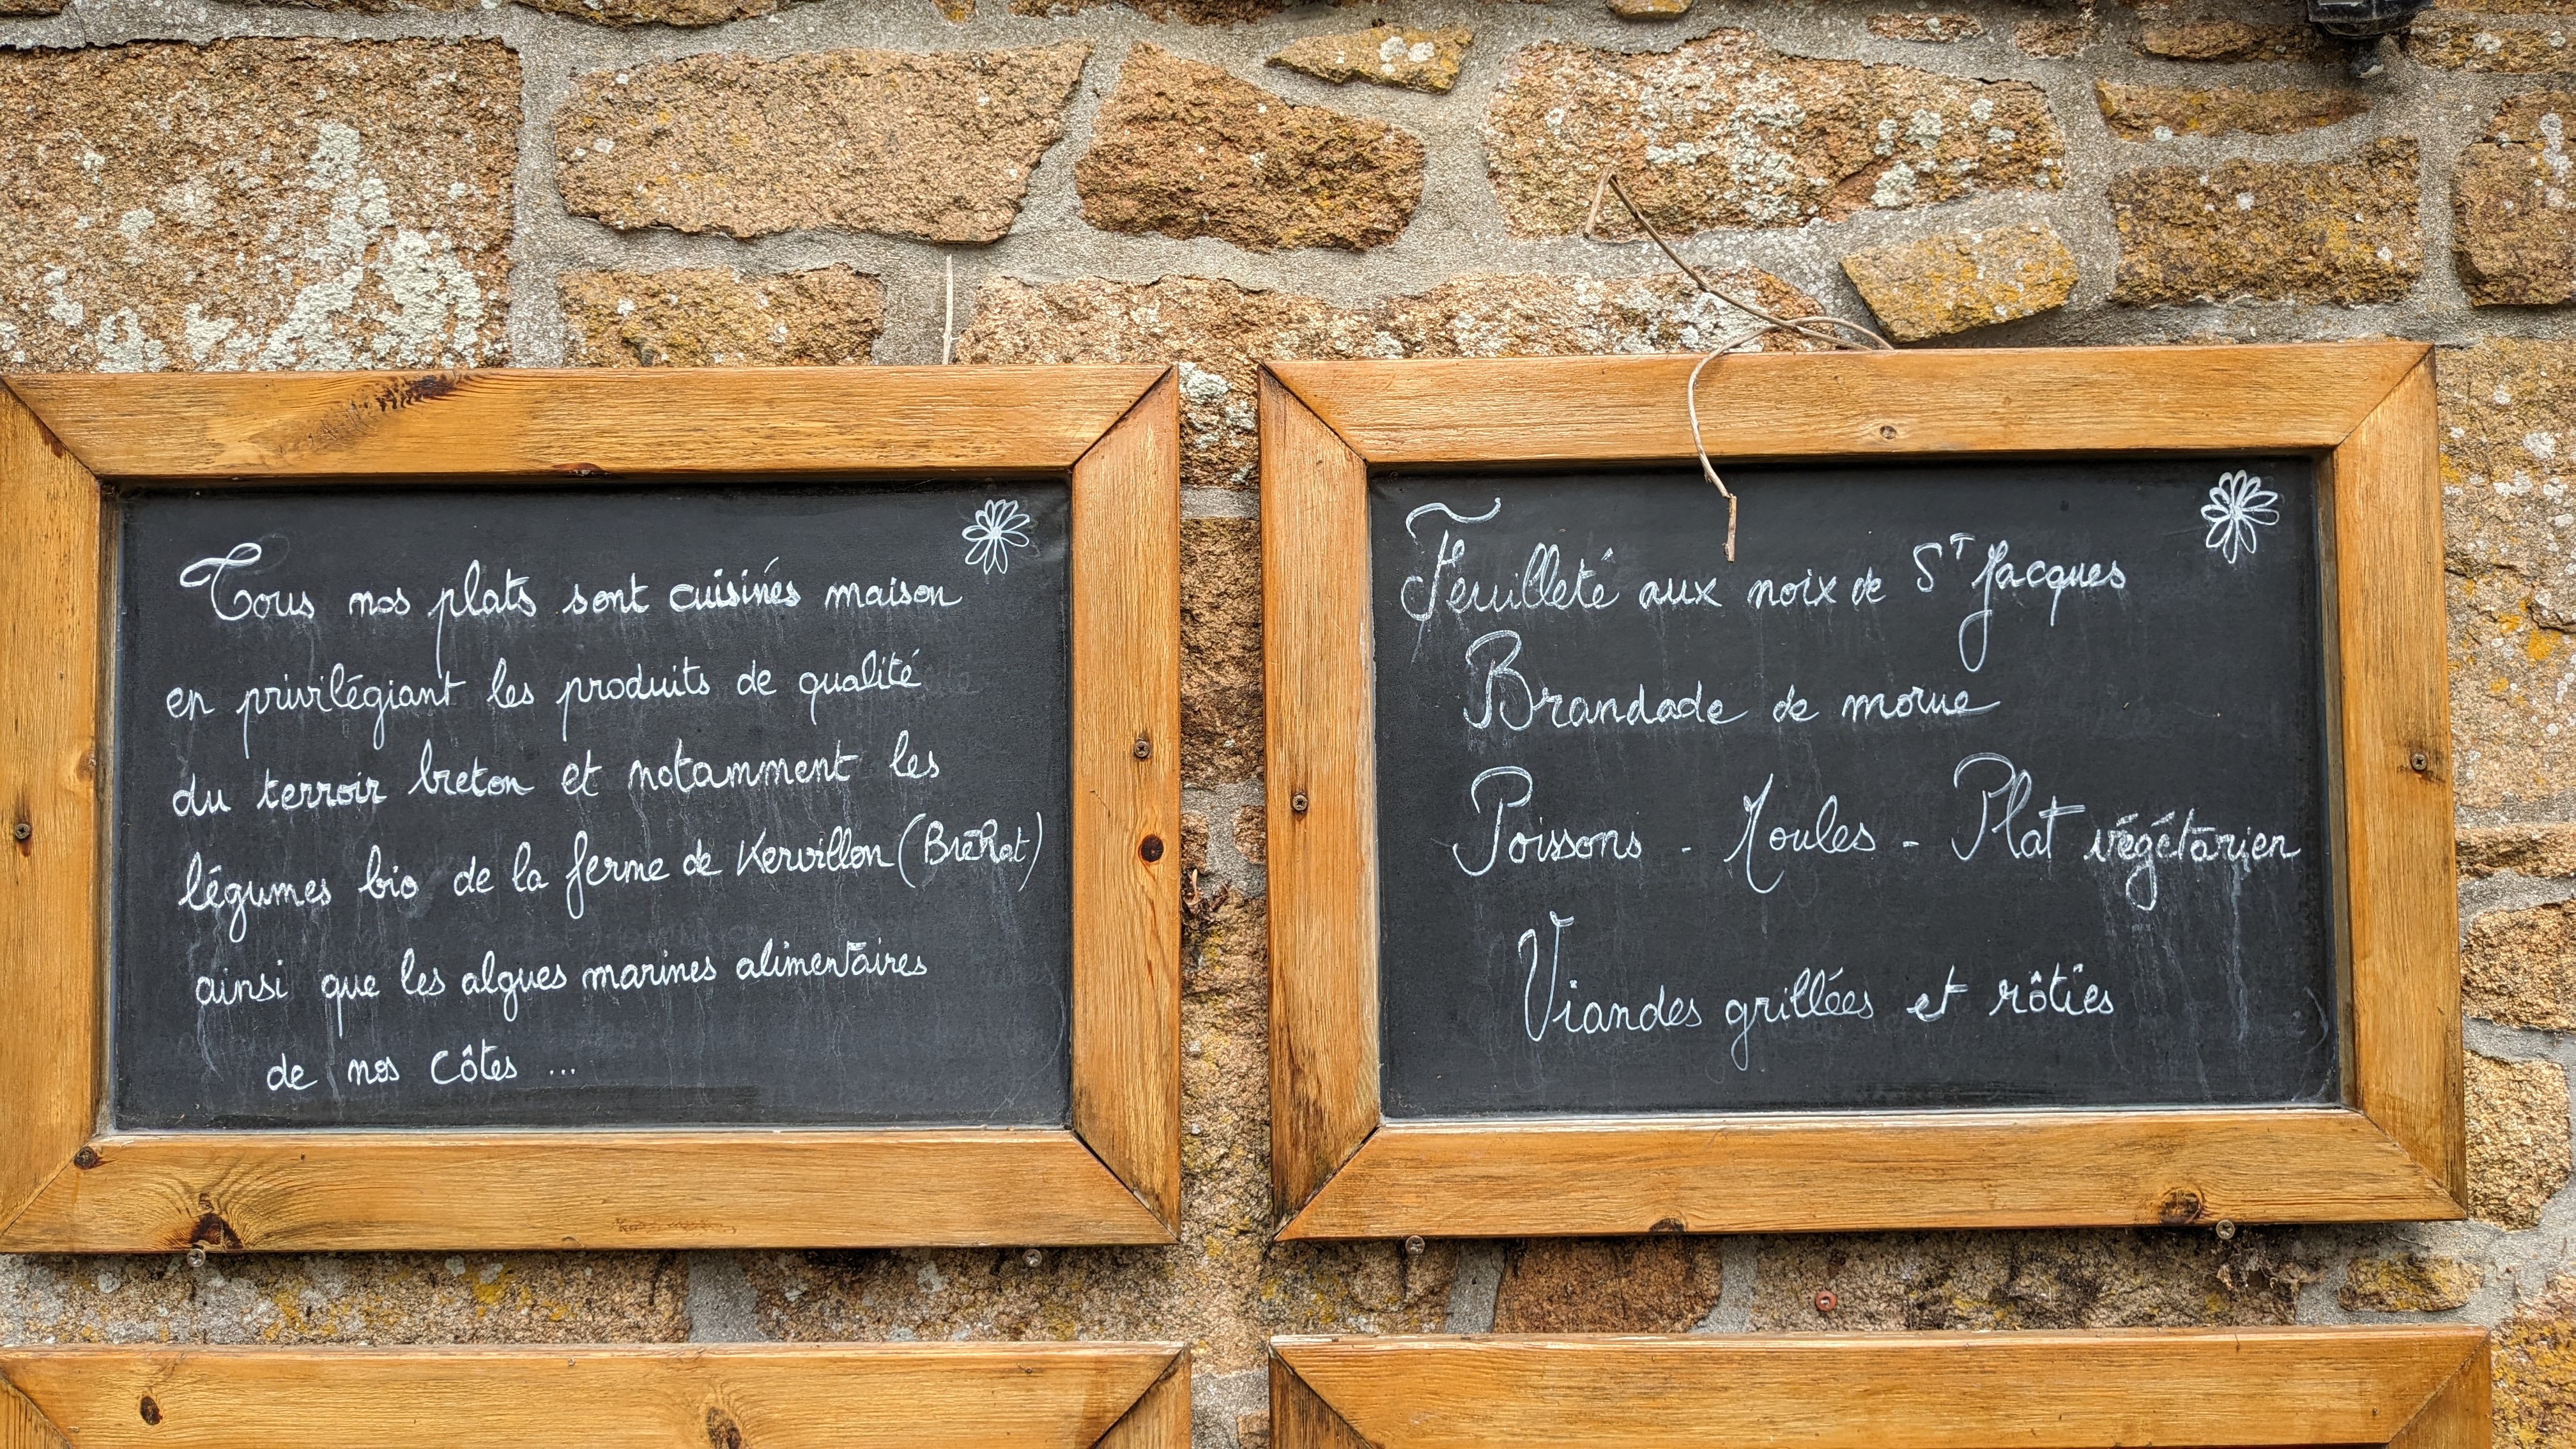 Tous nos plats sont cuisinés maison
en privilégiant les produits de qualité
du terroir breton et notamment les
légumes bio de la ferme de Kervillon (Bréhat)
ainsi que les algues marines alimentaires
de nos côtes ...
Feuilleté aux noix de ST Jacques
Brandade de morue
Poissons - Moules - Plat végétarien
Viandes grillées et rôties